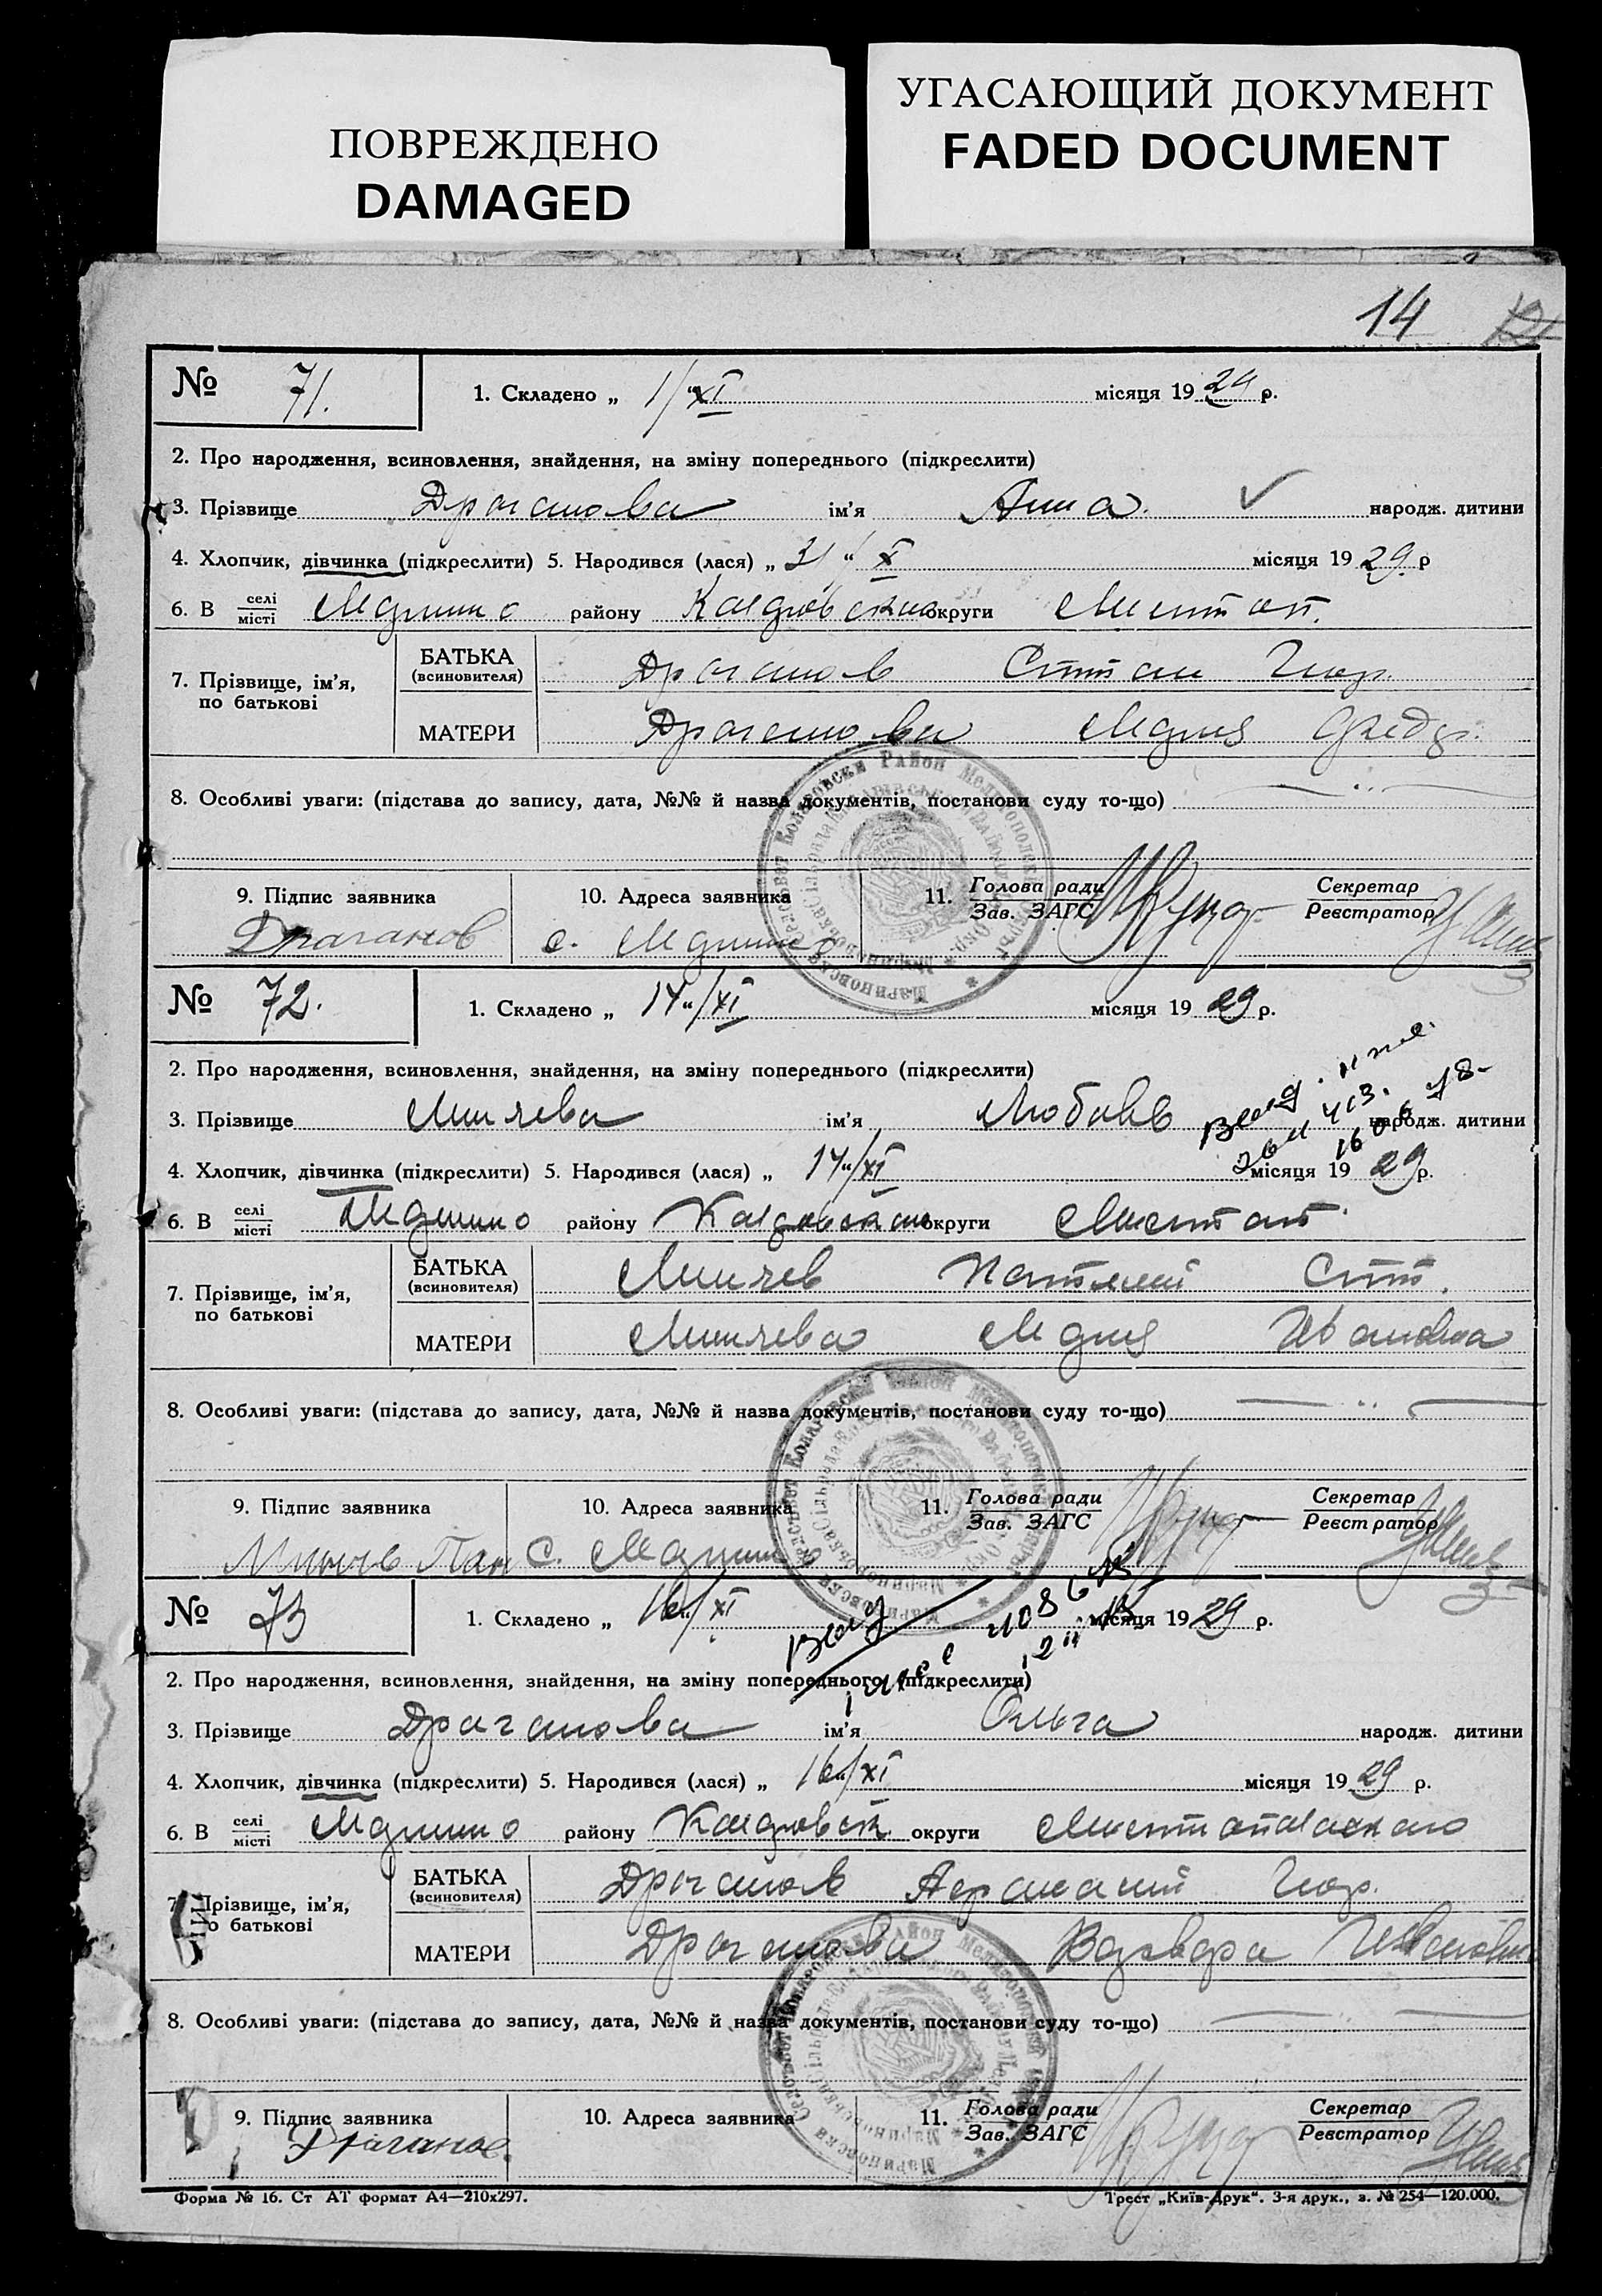 ПОВРЕЖДЕНО
DAMAGED
УГАСАЮЩИЙ ДОКУМЕНТ
FADED DOCUMENT
14
№ 71. 1. Складено „ 1/XI місяця 1929 р.
2. Про народження, всиновлення, знайдення, на зміну попереднього (підкреслити)
3. Прізвище Драганова ім'я Анна народж. дитини
4. Хлопчик, дівчинка (підкреслити) 5. Народився (лася) „ 31 “ X місяця 1929 р
6. В селі місті Марино району округи Мелитоп.
7. Прізвище, ім'я, по батькові
БАТЬКА (всиновителя) Драганов Степан Геор.
МАТЕРИ Драганова Мария
8. Особливі уваги: (підстава до запису, дата, №№ й назва документів, постанови суду то-що)
9. Підпис заявника 10. Адреса заявника 11. Голова ради Зав. ЗАГС Секретар Реєстратор
Драганов с. Марино
№ 72. 1. Складено „ 14“/XI місяця 1929 р.
2. Про народження, всиновлення, знайдення, на зміну попереднього (підкреслити)
3. Прізвище Минчева ім'я Любовь народж. дитини
4. Хлопчик, дівчинка (підкреслити) 5. Народився (лася) „ 14“/XI місяця 1929 р.
6. В селі місті Марино району округи Мелитоп.
7. Прізвище, ім'я, по батькові
БАТЬКА (всиновителя) Минчев Пантелей Степ.
МАТЕРИ Минчева Мария Ивановна
8. Особливі уваги: (підстава до запису, дата, №№ й назва документів, постанови суду то-що)
9. Підпис заявника 10. Адреса заявника 11. Голова ради Зав. ЗАГС Секретар Реєстратор
Минчев Пан с. Марино
№ 73 1. Складено „ 16“/XI місяця 1929 р.
2. Про народження, всиновлення, знайдення, на зміну попереднього (підкреслити)
3. Прізвище Драганова ім'я Ольга народж. дитини
4. Хлопчик, дівчинка (підкреслити) 5. Народився (лася) „ 16“/XI місяця 1929 р.
6. В селі місті Марино району Коларовск. округи Мелитопольского
7. Прізвище, ім'я, по батькові
БАТЬКА (всиновителя) Драганов Геор.
МАТЕРИ Драганова Варвара Ивановна
8. Особливі уваги: (підстава до запису, дата, №№ й назва документів, постанови суду то-що)
9. Підпис заявника 10. Адреса заявника 11. Голова ради Зав. ЗАГС Секретар Реєстратор
Драганов.
Форма № 16. Ст АТ формат А4—210х297. Трест „Київ-Друк“. 3-я друк., з. № 254—120.000.